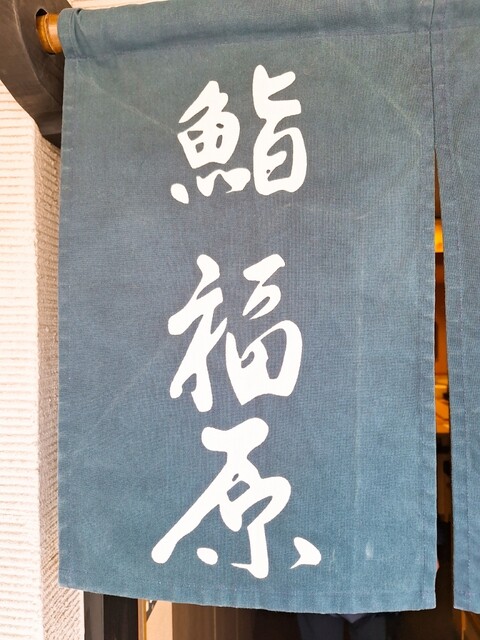 鮨福原